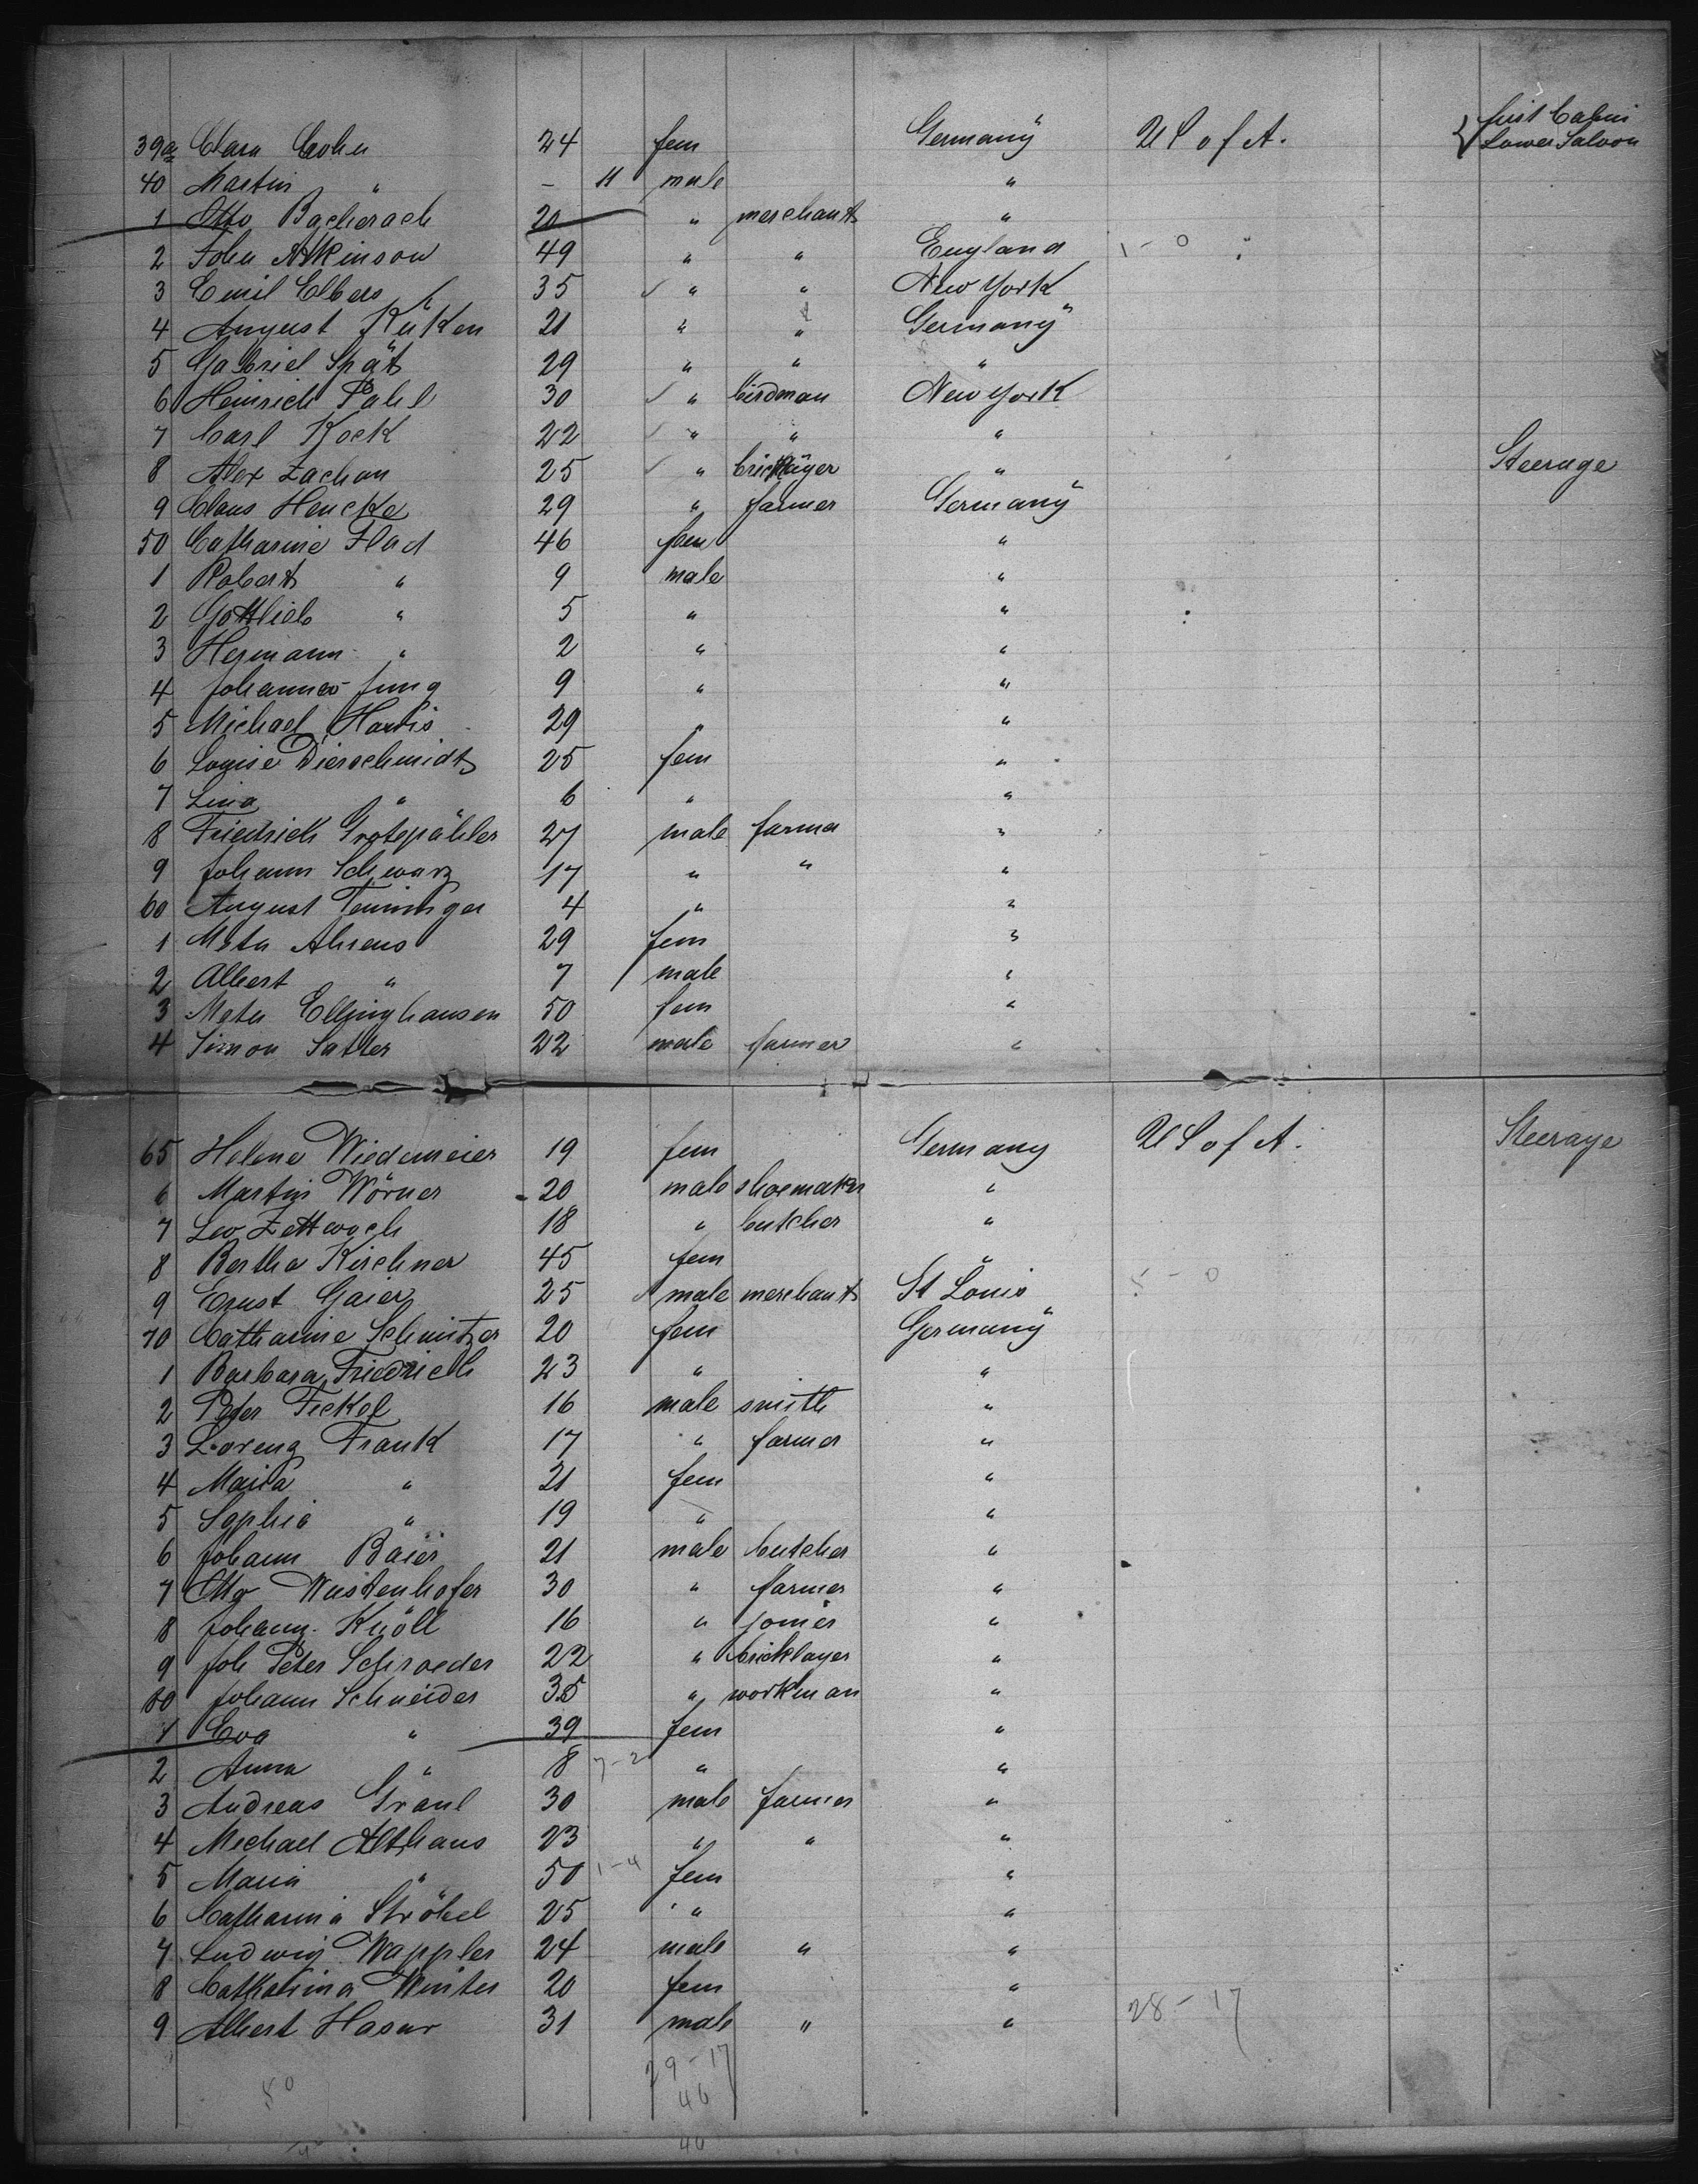 39a Clara Cohn 24 fem Germany U S of A. { first Cabin Lower Saloon
40 Martin " - 11 male "
1 Otto Bacherach 20 " merchant "
2 John Atkinson 49 " " England 1 - 0
3 Emil Elbers 35 " " New York
4 August Küken 21 " " Germany
5 Gabriel Spät 29 " " "
6 Heinrich Pahl 30 " birdman New York
7 Carl Kock 22 " " "
8 Alex Zachan 25 " bricklayer " Steerage
9 Claus Hencke 29 " farmer Germany
50 Catharine Flad 46 fem "
1 Robert " 9 male "
2 Gottlieb " 5 " "
3 Hermann " 2 " "
4 Johannes Jung 9 " "
5 Michael 29 " "
6 Louise Dierschmidt 25 fem "
7 Lina " 6 " "
8 Friedrich 27 male farmer "
9 Johann Schwarz 17 " " "
60 August 4 " "
1 Meta Ahrens 29 fem "
2 Albert " 7 male "
3 Meta Ellinghausen 50 fem "
4 Simon Satter 22 male farmer "
65 Helene Wiedemeier 19 fem Germany U S of A. Steerage
6 Martin Wörner 20 male shoemaker "
7 Leo Zettwoch 18 " butcher "
8 Bertha Kirchner 45 fem "
9 Ernst Gaier 25 male merchant St Louis - 0
70 Catharine Schmitzer 20 fem Germany
1 Barbara Friedrich 23 " "
2 Peter Fickel 16 male smith "
3 Lorenz Frank 17 " farmer "
4 Maria " 21 fem "
5 Sophia " 19 " "
6 Johann Baier 21 male butcher "
7 Otto Wustenhofer 30 " farmer "
8 Johann Knöll 16 " joiner "
9 Joh Peter Schroeder 22 " bricklayer "
80 Johann Schneider 35 " workman "
1 Eva " 39 fem "
2 Anna " 8 7-2 " "
3 Andreas Graul 30 male farmer "
4 Michael Althaus 23 " " "
5 Maria " 50 1-4 fem "
6 Catharina Ströbel 25 " "
7 Ludwig Wappler 24 male " "
8 Catharina Winter 20 fem "
9 Albert 31 male " " 28 - 17
29 - 17
46
40